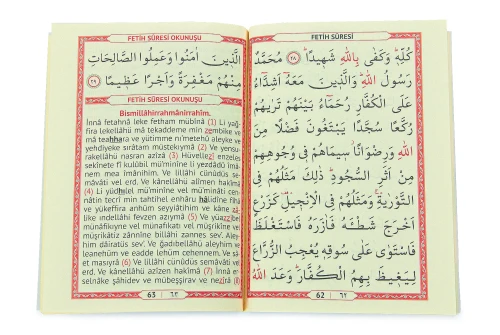 FETİH SÛRESİ
كُلِّهِ وَكَفٰى بِاللّٰهِ شَهٖيدًا ﴿٢٨﴾ مُحَمَّدٌ
رَسُولُ اللّٰهِ وَالَّذٖينَ مَعَهُٓ اَشِدَّٓاءُ
عَلَى الْكُفَّارِ رُحَمَٓاءُ بَيْنَهُمْ تَرٰيهُمْ
رُكَّعًا سُجَّدًا يَبْتَغُونَ فَضْلًا مِنَ
اللّٰهِ وَرِضْوَانًا سٖيمَاهُمْ فٖى وُجُوهِهِمْ
مِنْ اَثَرِ السُّجُودِ ذٰلِكَ مَثَلُهُمْ فِى
التَّوْرٰيةِ وَمَثَلُهُمْ فِى الْاِنْجٖيلِ كَزَرْعٍ
اَخْرَجَ شَطْـَٔهُ فَاٰزَرَهُ فَاسْتَغْلَظَ
فَاسْتَوٰى عَلٰى سُوقِهٖ يُعْجِبُ الزُّرَّاعَ
لِيَغٖيظَ بِهِمُ الْكُفَّارَ وَعَدَ اللّٰهُ
62 ٦٢
FETİH SÛRESİ OKUNUŞU
الَّذٖينَ اٰمَنُوا وَعَمِلُوا الصَّالِحَاتِ
مِنْهُمْ مَغْفِرَةً وَاَجْرًا عَظٖيمًا ﴿٢٩﴾
FETİH SÛRESİ OKUNUŞU
Bismillâhirrahmânirrahîm.
İnnâ fetahnâ leke fetham mübînâ (1) Li yağ-
fira lekellâhü mâ tekaddeme min zembike ve
mâ teahhara ve yütimme ni'metehû aleyke ve
yehdiyeke sırâtam müstekıymâ (2) Ve yensu-
rakellâhü nasran azîzâ (3) Hüvellezî enzeles
sekînete fî kulûbil mü'minîne li yezdâdû îmâ-
nem mea îmânihim. Ve lillâhi cünûdüs se-
mâvâti vel erd. Ve kânellâhü alîmen hakîmâ
(4) Li yüdhılel mü'minîne vel mü'minâti cen-
nâtin tecrî min tahtihel enhâru hâlidîne fîhâ
ve yükeffira anhüm seyyiâtihim ve kâne zâ-
like indellâhi fevzen azıymâ (5) Ve yüazzibel
münâfikıyne vel münâfikati vel müşrikîne vel
müşrikâtiz zânnîne billâhi zannes sev'. Aley-
him dâiratüs sev'. Ve ğadıbellâhü aleyhim ve
leanehüm ve eadde lehüm cehennem. Ve sâ-
et masıyrâ (6) Ve lillâhi cünûdüs semâvâti vel
erd. Ve kânellâhü azîzen hakîmâ (7) İnnâ er-
selnâke şâhidev ve mübeşşirav ve nezîrâ (8)
63 ٦٣